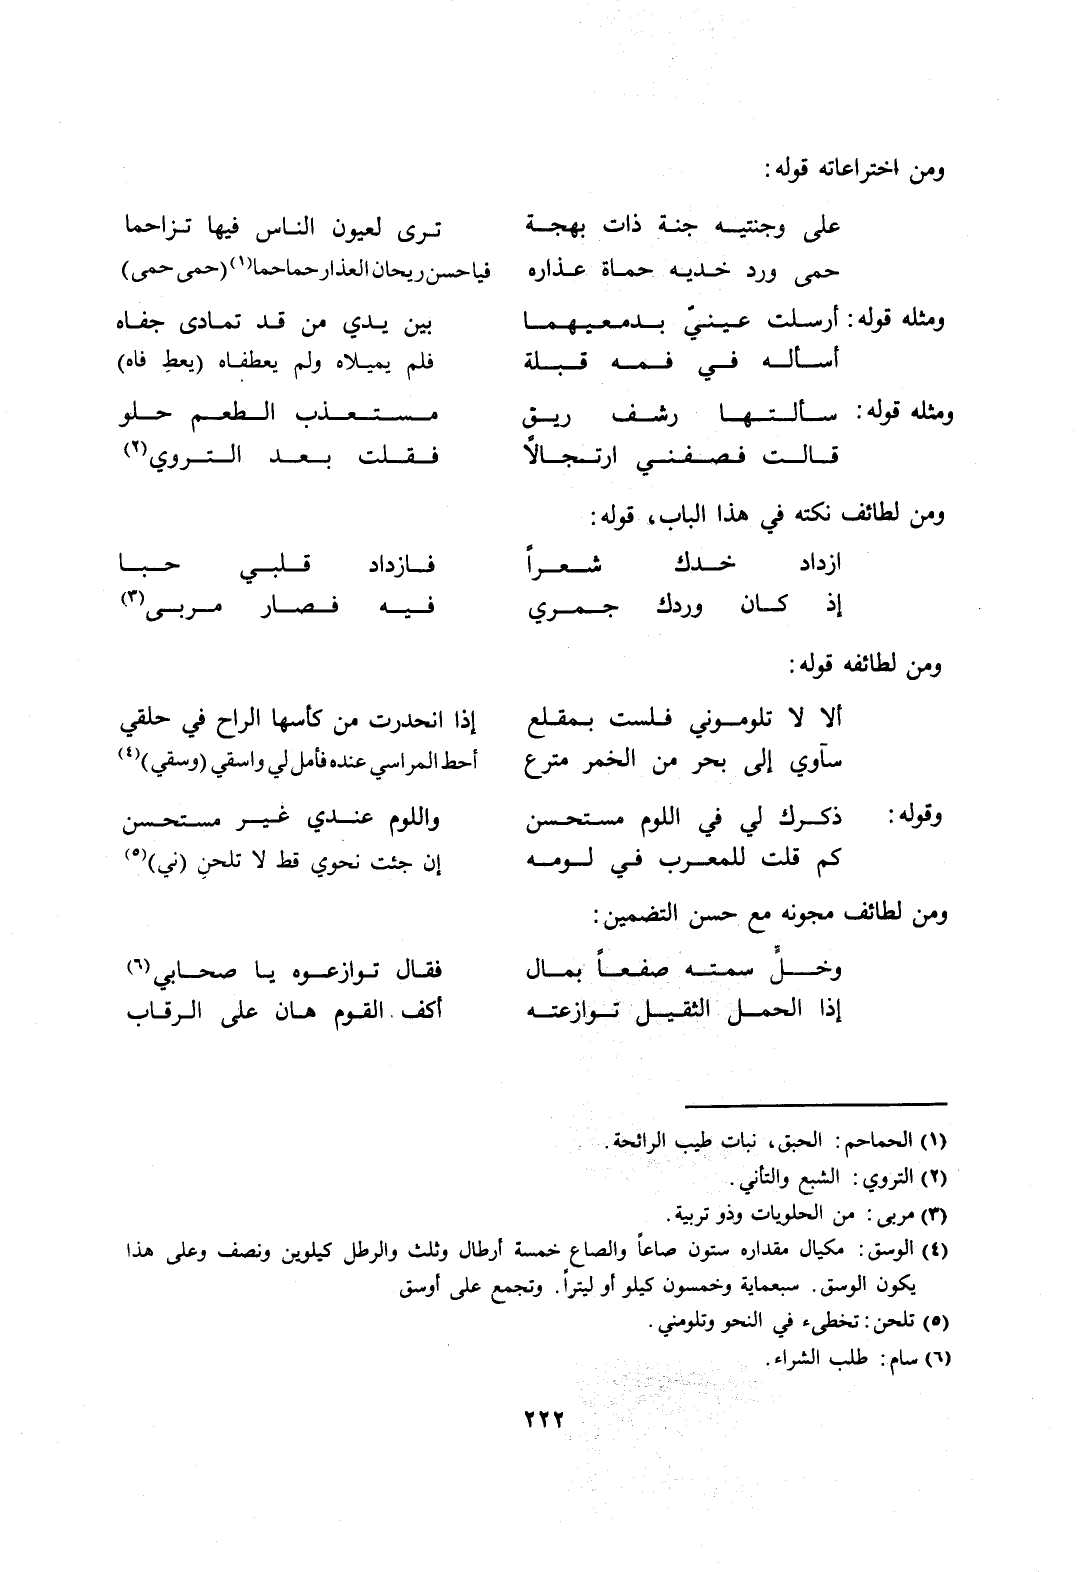 ومن اختراعاته قوله:
على وجنتيه جنة ذات بهجة ترى لعيون الناس فيها تزاحما
حمى ورد خديه حماة عذاره فيا حسن ريحان العذار حماحما(١) (حمى حمى)
ومثله قوله: أرسلت عينيّ بدمعيهما بين يدي من قد تمادى جفاه
أسأله في فمه قبلة فلم يميلاه ولم يعطفاه (يعطِ فاه)
ومثله قوله: سألتها رشف ريق مستعذب الطعم حلو
قالت فصفني ارتجالاً فقلت بعد التروي(٢)
ومن لطائف نكته في هذا الباب، قوله:
ازداد خدك شعراً فازداد قلبي حبا
إذ كان وردك جمري فيه فصار مربى(٣)
ومن لطائفه قوله:
ألا لا تلوموني فلست بمقلع إذا انحدرت من كأسها الراح في حلقي
سآوي إلى بحر من الخمر مترع أحط المراسي عنده فأمل لي واسقي (وسقي)(٤)
وقوله: ذكرك لي في اللوم مستحسن واللوم عندي غير مستحسن
كم قلت للمعرب في لومه إن جئت نحوي قط لا تلحنِ (ني)(٥)
ومن لطائف مجونه مع حسن التضمين:
وخلٍّ سمته صفعاً بمال فقال توازعوه يا صحابي(٦)
إذا الحمل الثقيل توازعته أكف القوم هان على الرقاب
(١) الحماحم: الحبق، نبات طيب الرائحة.
(٢) التروي: الشبع والتأني.
(٣) مربى: من الحلويات وذو تربية.
(٤) الوسق: مكيال مقداره ستون صاعاً والصاع خمسة أرطال وثلث والرطل كيلوين ونصف وعلى هذا
يكون الوسق. سبعماية وخمسون كيلو أو ليتراً. وتجمع على أوسق
(٥) تلحن: تخطىء في النحو وتلومني.
(٦) سام: طلب الشراء.
٢٢٢